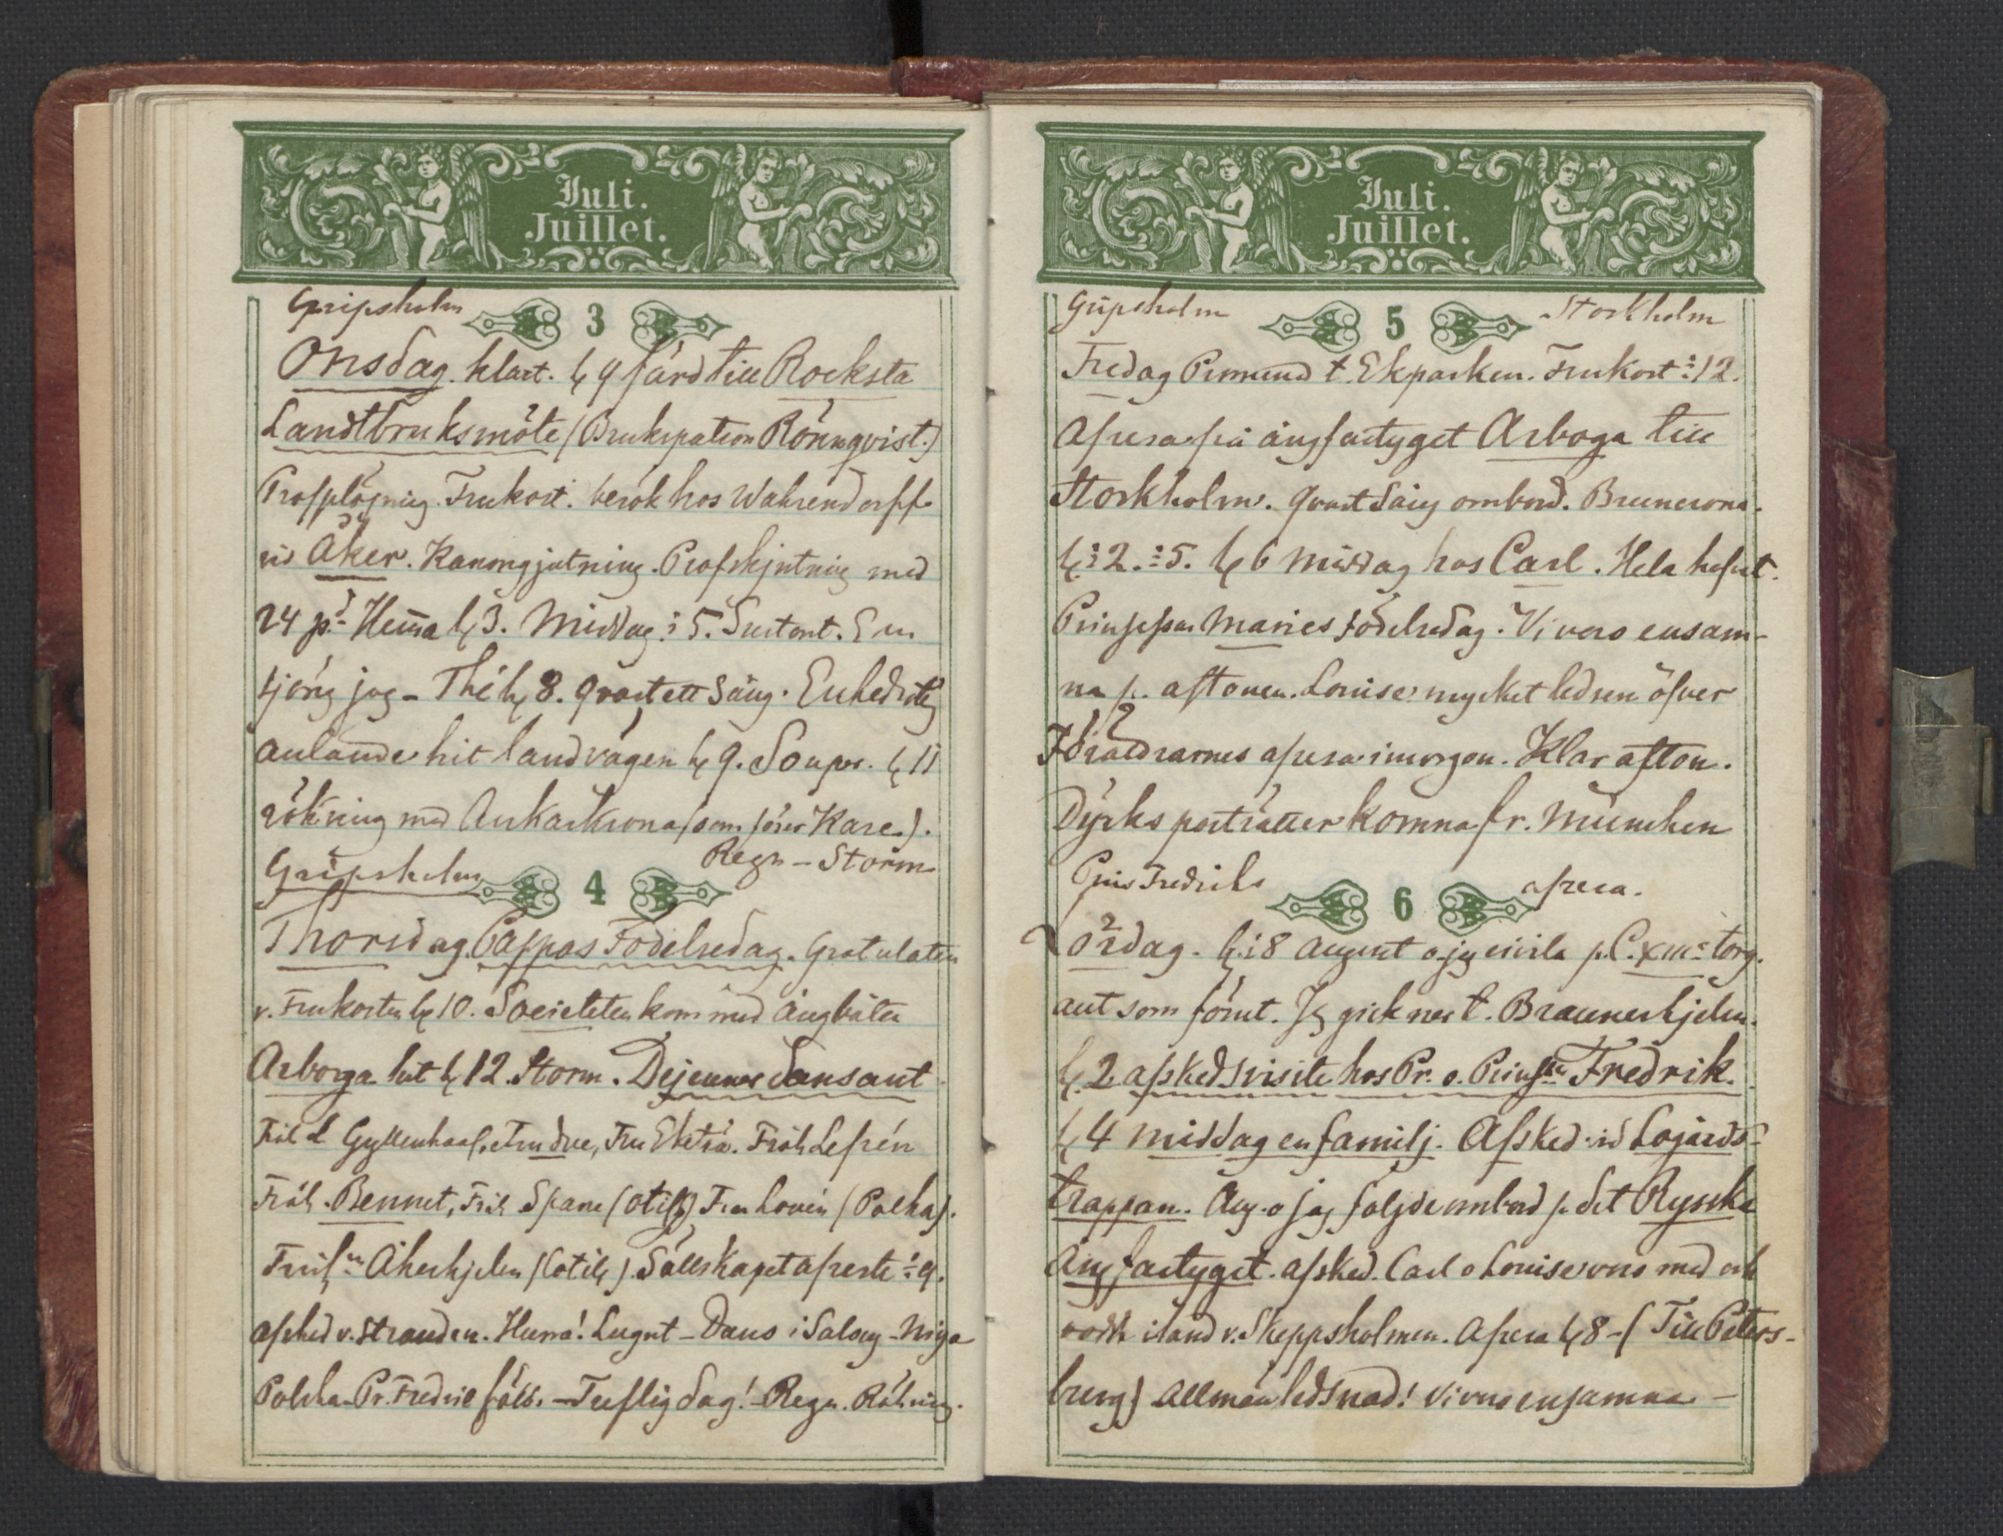 Juli.
Juillet.
Gripsholm
3
Onsdag. klart. kl 9 färd till Rocksta
Landtbruksmöte (Brukspatron Rönnqvist.)
Profplöjning. Frukost. besök hos Wahrendorff
vid Åker. Kanongjutning. Profskjutning med
24 pd Hemma kl 3. Middag ½ 5.
sjöng jag – Thé kl 8. qvartett sång. Enkedrottg
anlände hit landvägen kl 9. Souper. kl 11
rökning med Ankarkrona (som förer Kare.).
Gripsholm
4
Regn – Storm
Thorsdag Pappas Födelsedag. Gratulation
v. Frukosten kl 10. Societeten kom med ångbåten
Arboga hit kl 12. Storm. Dejeuner dansant
Gyllenhaal, Fru Due, Fru Ekströ. Fröh Lefrén
Fröh. Bennet, Fröh Spare (Cotill) Fru Lovén (Polka).
Åkerhjelm (Cotill). Sällskapet afreste ½ 9.
afsked v. stranden. Hurra! Lugnt – Dans i Salong – Niga
Polska. Pr. Fredric föll. – Treflig dag! – Regn. Rökning.
Juli.
Juillet.
Gripsholm
5
Stockholm
Fredag Promenad t. Ekparken. Frukost ½ 12.
Afresa på ångfartyget Arboga till
Stockholm. Qvart Sång ombord. Brunerona.
kl ½ 2. ½ 5. kl 6 Middag hos Carl. Hela hofvet.
Prinsessan Maries födelsedag. Vi voro ensam-
na p. aftonen. Louise mycket ledsen öfver
Föräldrarnes afresa i morgon. Klar afton.
Dycks porträtter komna fr. München
Prins Fredriks
6
afresa.
Lördag. kl ½ 8 August o jag civila p. C. XIIIs torg.
aut som förut. Jg gick ner t. Braunerhjelm.
kl. 2 afskedsvisite hos Pr. o. Prinssn Fredrik.
kl 4 middag en familj. Afsked vid Logårds-
trappan. Aug. o jag följde ombord p. det Ryska
Ångfartyget. afsked. Carl o Louise voro med och
rodde i land v. Skeppsholmen. Afresa kl 8 – (Till Peters-
burg) Allmän ledsnad! Vi voro ensamna –